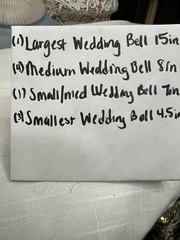 (1) Largest Wedding Bell 15in
(2) Medium Wedding Bell 8in
(1) Small/med Wedding Bell 7in
(3) Smallest Wedding Bell 4.5in